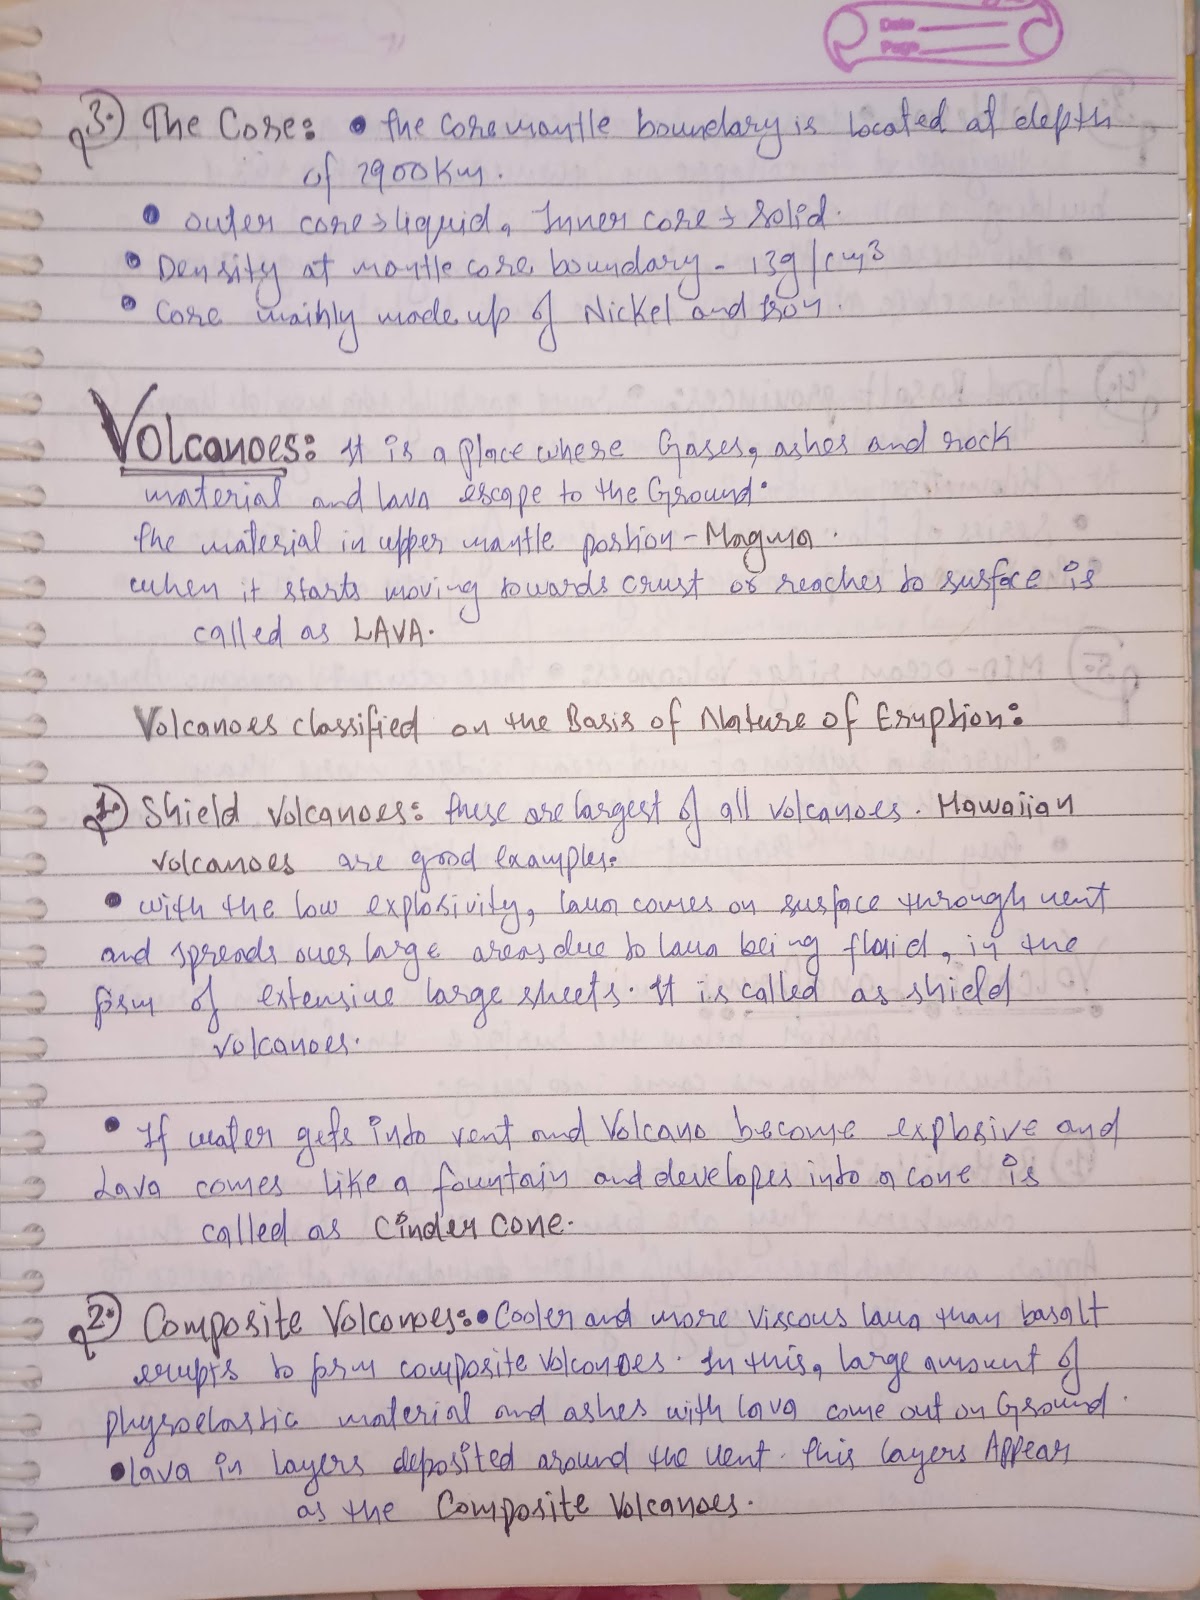 Date
Page
3. The Core: • the core mantle boundary is located at depth
of 2900Km.
• outer core → liquid, Inner core → solid.
• Density at mantle core boundary - 13g/cm3
• Core mainly made up of Nickel and Iron.
Volcanoes: It is a place where Gases, ashes and rock
material and lava escape to the Ground.
the material in upper mantle portion - Magma.
when it starts moving towards crust or reaches to surface is
called as LAVA.
Volcanoes classified on the Basis of Nature of Eruption:
1. Shield Volcanoes: these are largest of all volcanoes. Hawaiian
volcanoes are good examples.
• with the low explosivity, lava comes on surface through vent
and spreads over large areas due to lava being fluid, in the
form of extensive large sheets. It is called as shield
volcanoes.
• If water gets into vent and Volcano become explosive and
Lava comes like a fountain and developes into a cone is
called as Cinder cone.
2. Composite Volcanoes: • Cooler and more Viscous lava than basalt
erupts to form composite Volcanoes. In this, large amount of
physoelastic material and ashes with lava come out on Ground.
• lava in layers deposited around the vent. this layers Appear
as the Composite Volcanoes.